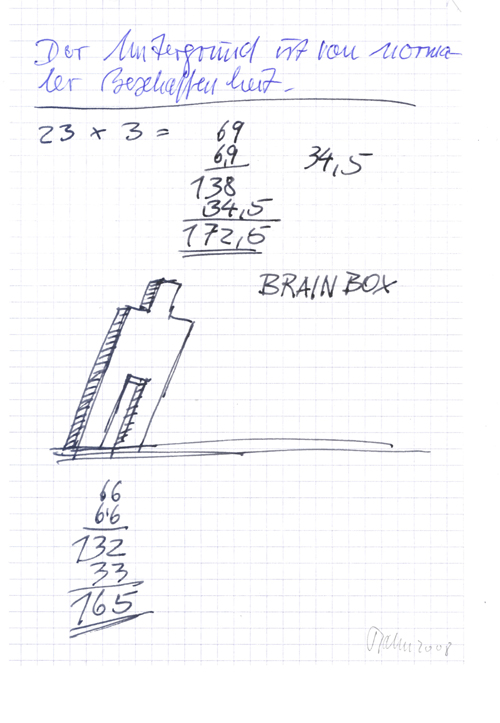 Der Untergrund ist von norma-
ler Beschaffenheit.
23 x 3 = 69
6,9 34,5
138
34,5
172,5
BRAINBOX
66
66
132
33
165
2008